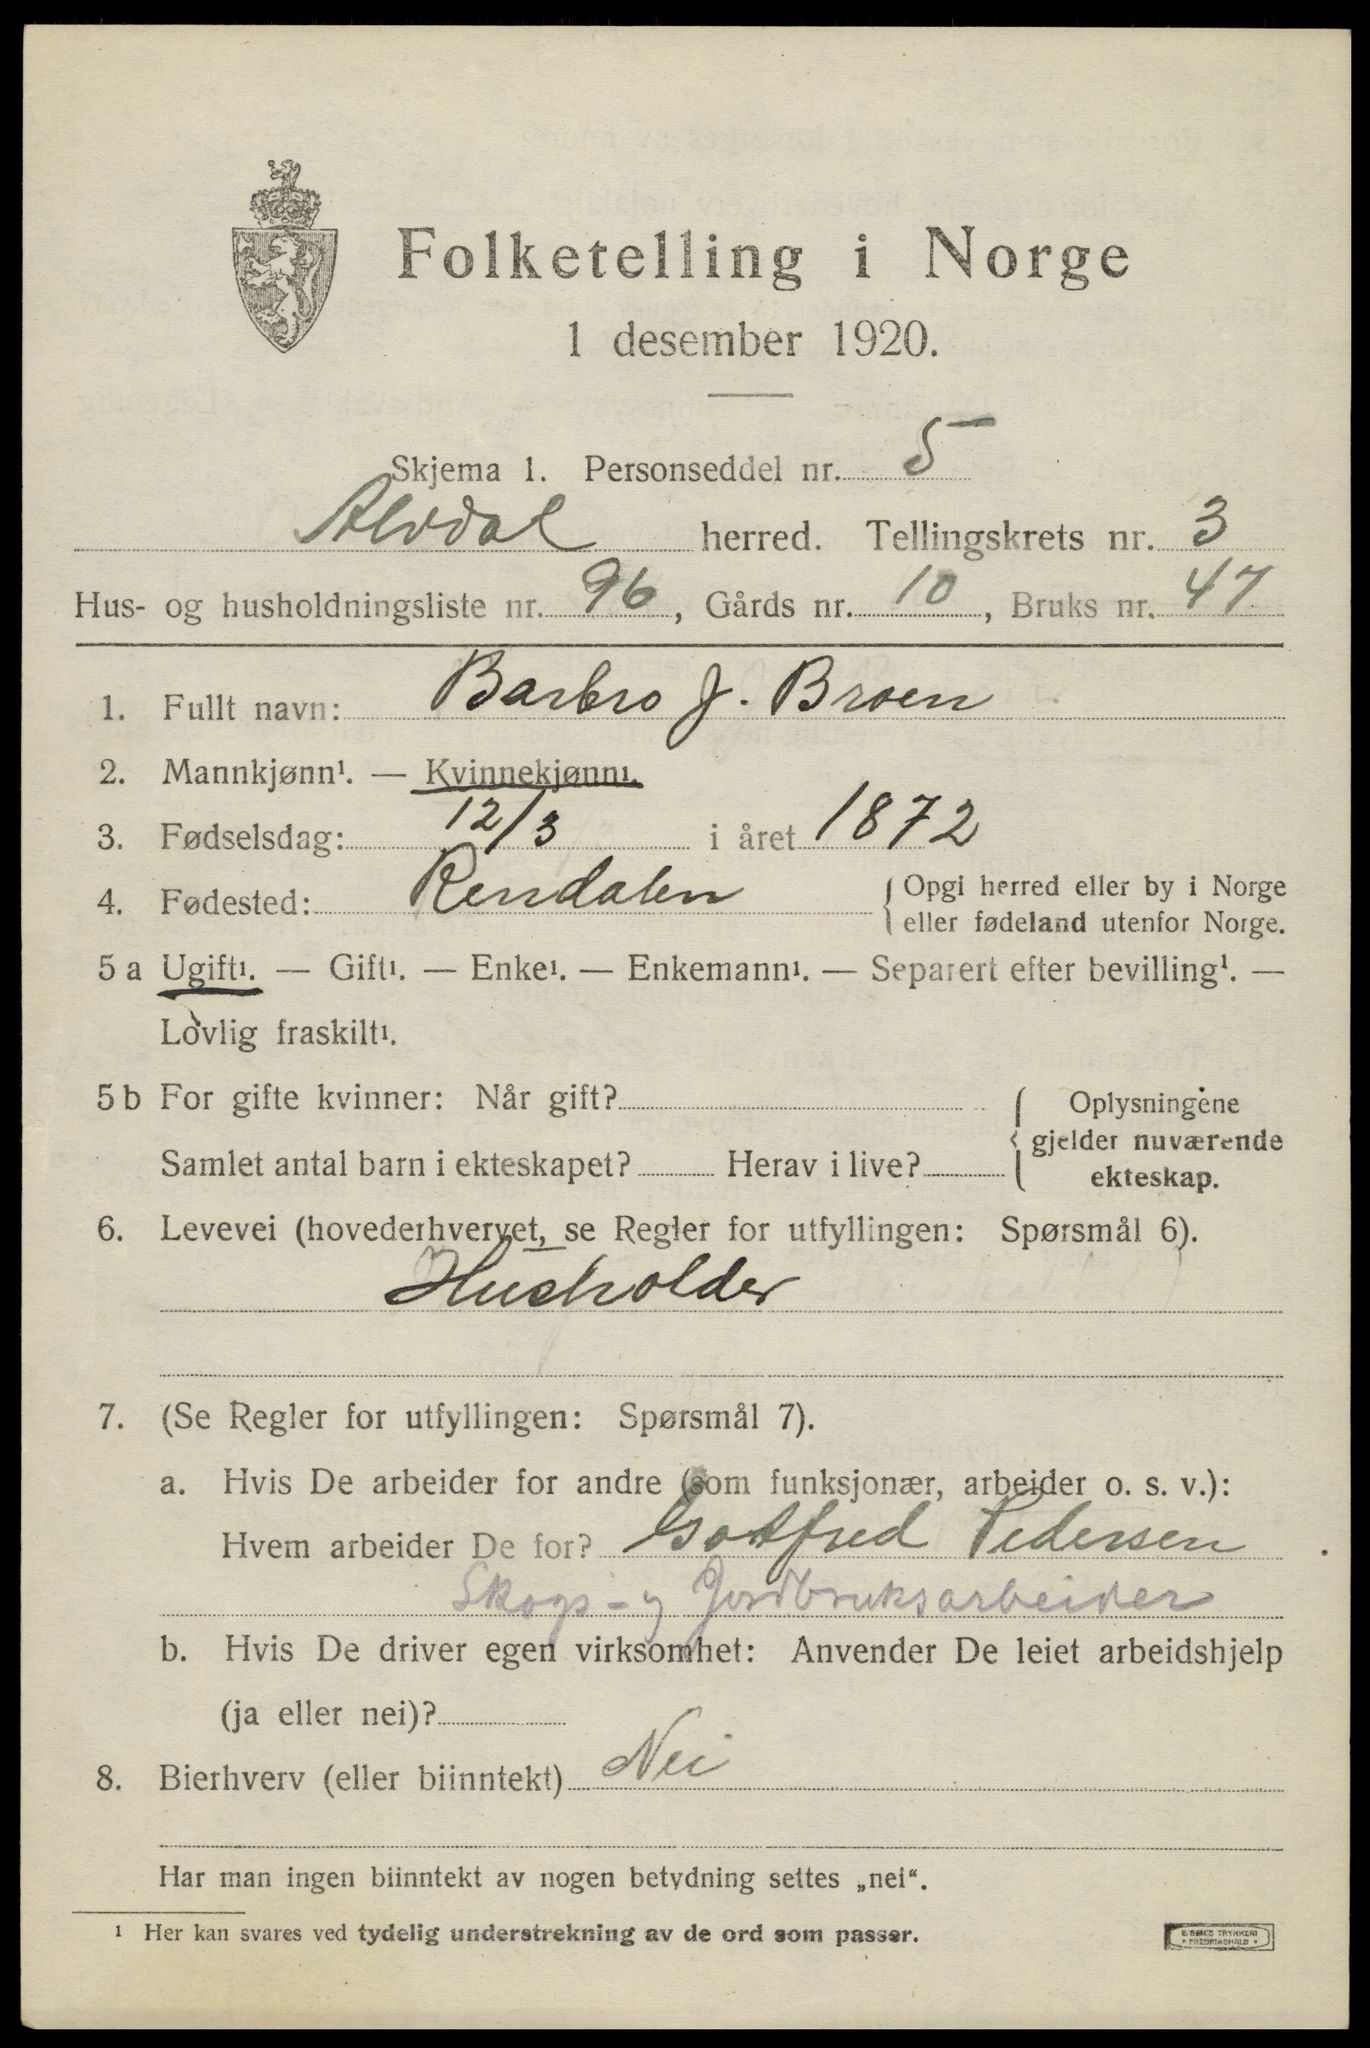 Folketelling i Norge
1 desember 1920.
Skjema 1. Personseddel nr. 5
Alvdal herred. Tellingskrets nr. 3
Hus- og husholdningsliste nr. 96, Gårds nr. 10, Bruks nr. 47
1. Fullt navn: Barbro J. Broen
2. Mannkjønn¹. — Kvinnekjønn¹.
3. Fødselsdag: 12/3 i året 1872
4. Fødested: Rendalen { Opgi herred eller by i Norge
eller fødeland utenfor Norge.
5 a Ugift¹. — Gift¹. — Enke¹. — Enkemann¹. — Separert efter bevilling¹. —
Lovlig fraskilt¹.
5 b For gifte kvinner: Når gift? { Oplysningene
gjelder nuværende
Samlet antal barn i ekteskapet? Herav i live? ekteskap.
6. Levevei (hovederhvervet, se Regler for utfyllingen: Spørsmål 6).
Husholder
7. (Se Regler for utfyllingen: Spørsmål 7).
a. Hvis De arbeider for andre (som funksjonær, arbeider o. s. v.):
Hvem arbeider De for? Gotfred Pedersen
Skogs- og Jordbruksarbeider
b. Hvis De driver egen virksomhet: Anvender De leiet arbeidshjelp
(ja eller nei)?
8. Bierhverv (eller biinntekt) Nei
Har man ingen biinntekt av nogen betydning settes „nei“.
¹ Her kan svares ved tydelig understrekning av de ord som passer.
E. SEM'S TRYKKERI
* FREDRIKSHALD *